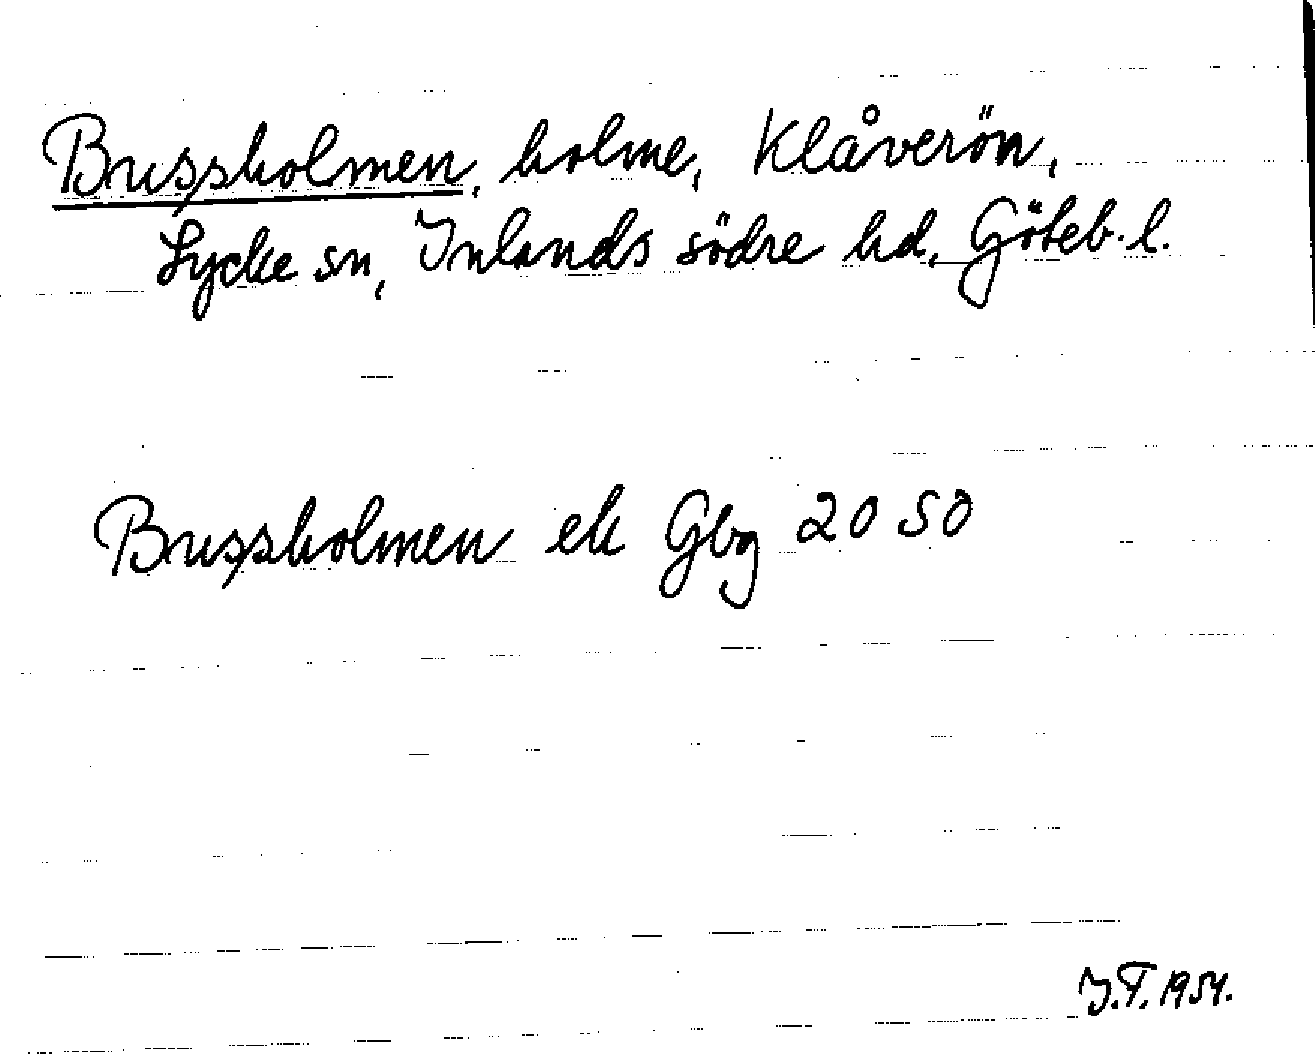 Brussholmen, holme, Klåverön,
Lycke sn, Inlands södre hd, Göteb. l.
Brussholmen ek Gbg 20 S0
I.F. 1954.